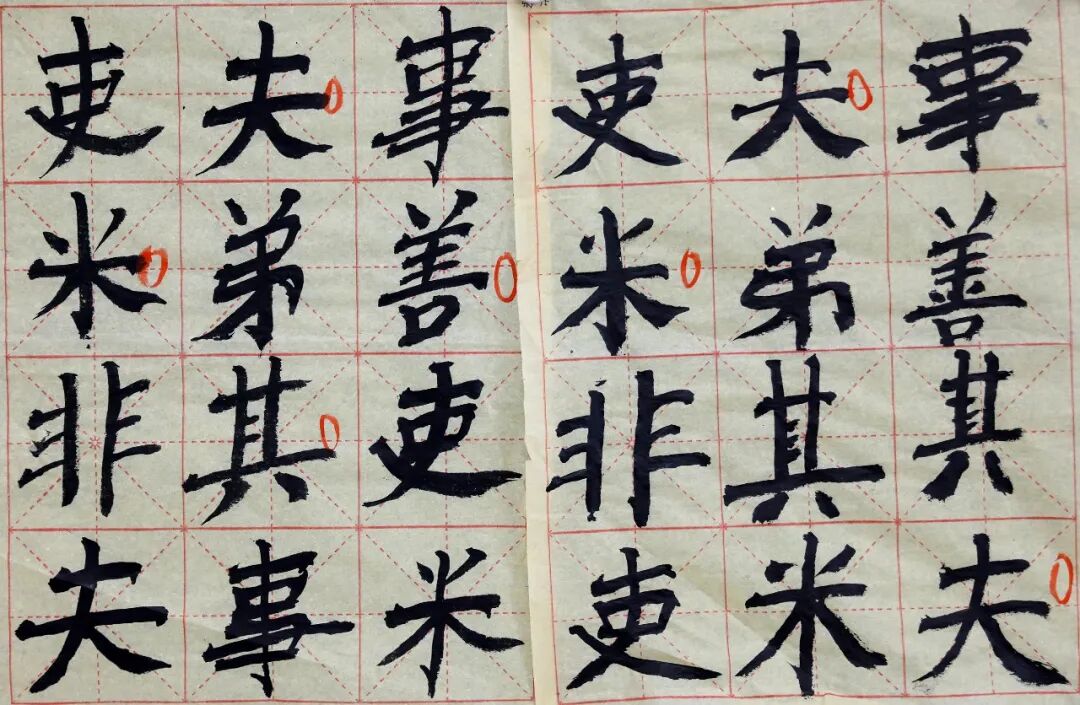 吏夫事
米弟善
非其吏
夫事米
吏夫事
米弟善
非其其
吏米夫